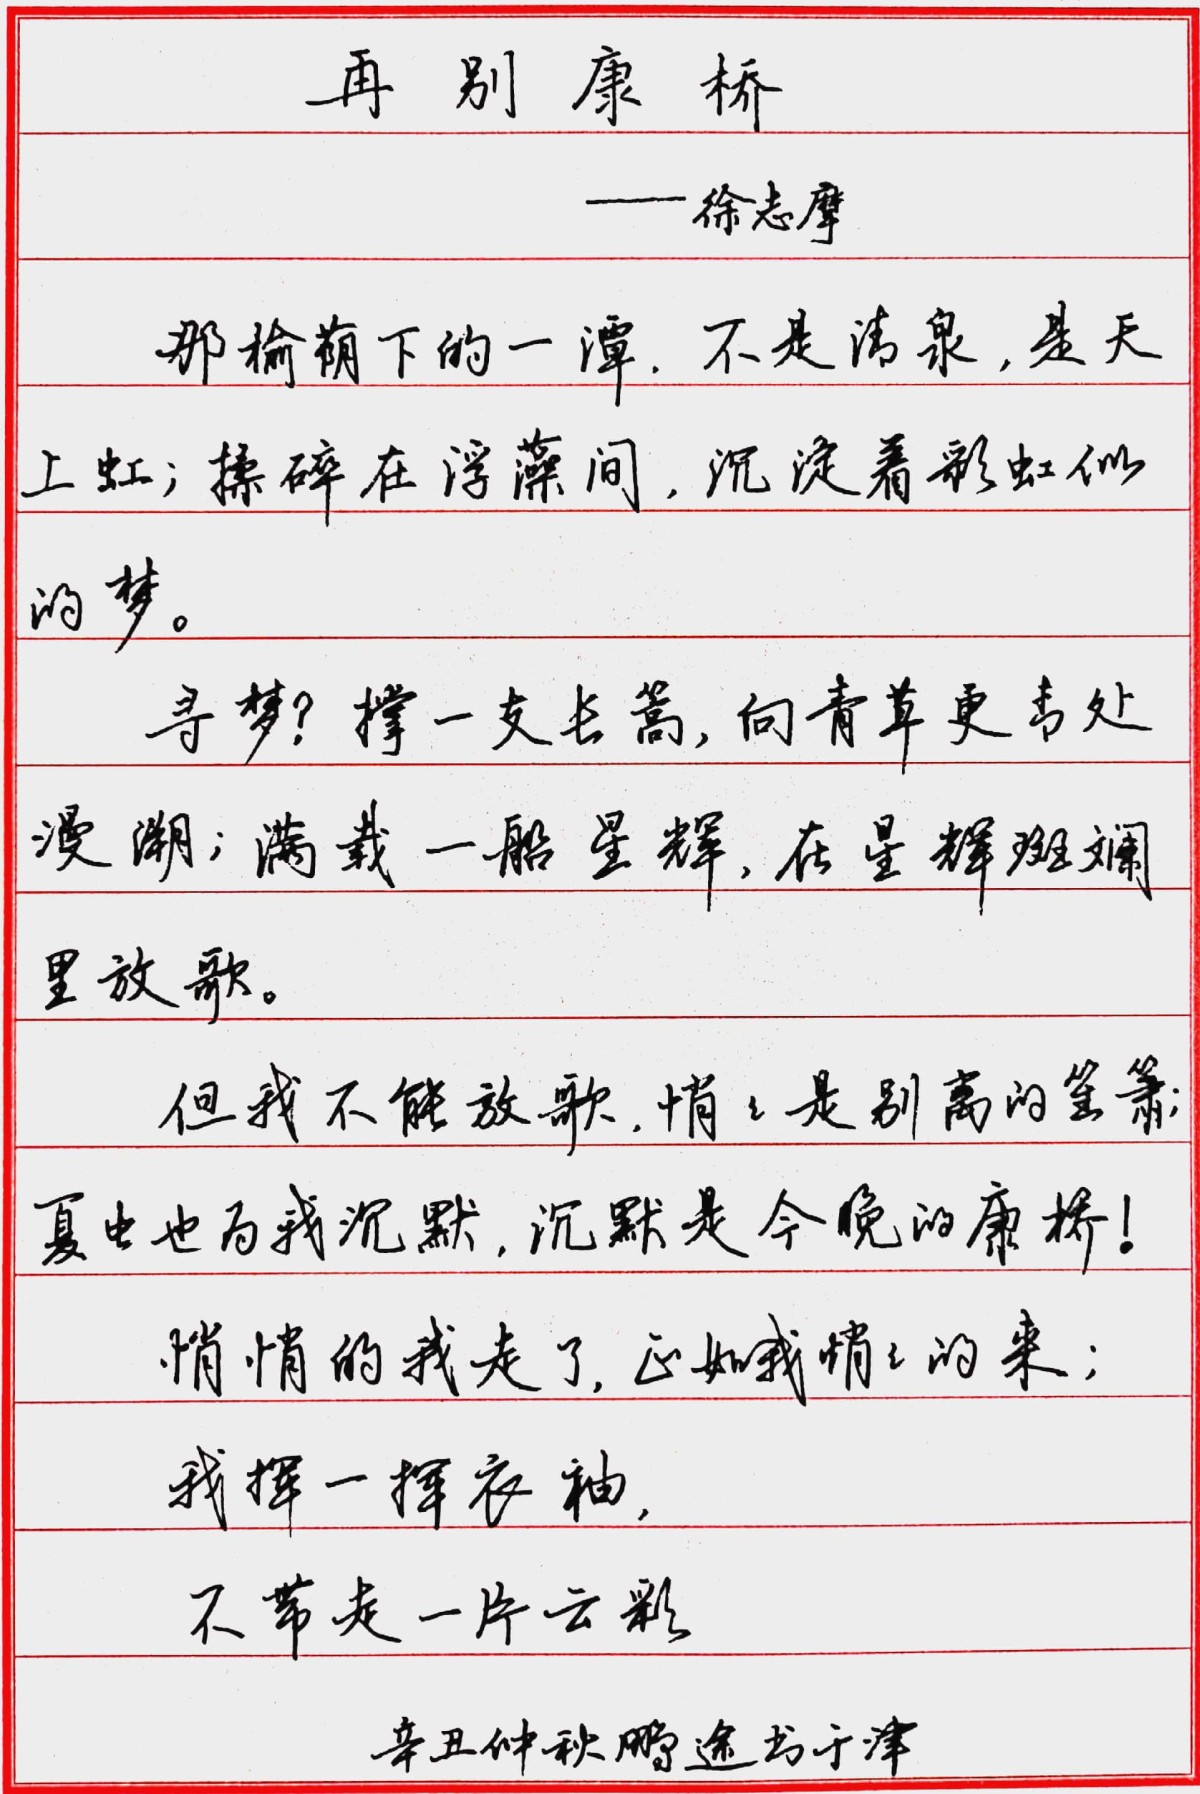 再别康桥
——徐志摩
那榆荫下的一潭，不是清泉，是天
上虹；揉碎在浮藻间，沉淀着彩虹似
的梦。
寻梦？撑一支长篙，向青草更青处
漫溯；满载一船星辉，在星辉斑斓
里放歌。
但我不能放歌，悄々是别离的笙箫；
夏虫也为我沉默，沉默是今晚的康桥！
悄悄的我走了，正如我悄々的来；
我挥一挥衣袖，
不带走一片云彩
辛丑仲秋鹏途书于津